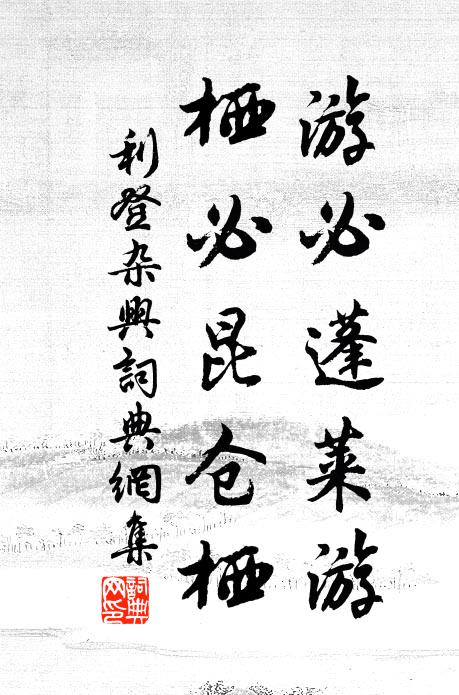 游必蓬莱游
栖必昆仑栖
利登杂興詞典網集
詞典